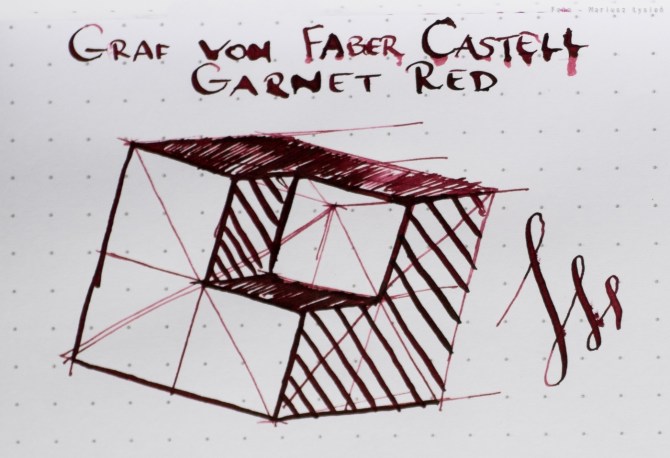 Foto - Mariusz Łysień
Graf von Faber Castell
Garnet Red